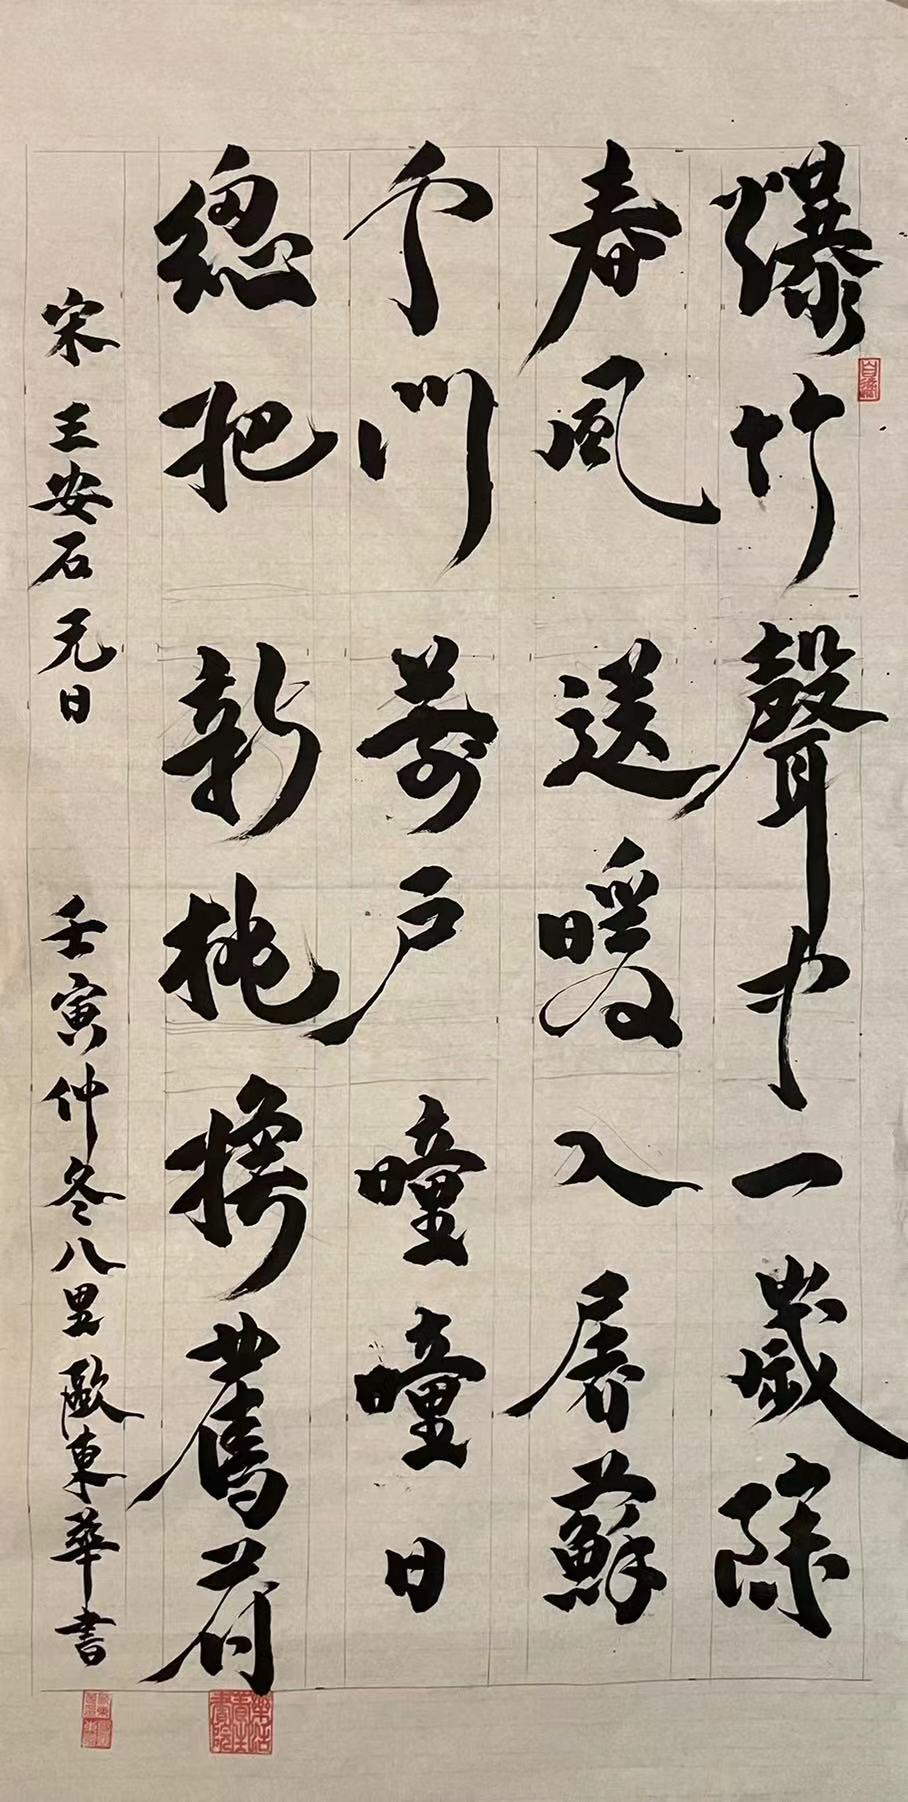 爆竹聲中一歲除
春風送暖入屠蘇
千門萬戶曈曈日
總把新桃換舊苻
宋 王安石 元日 壬寅仲冬八里歐東華書